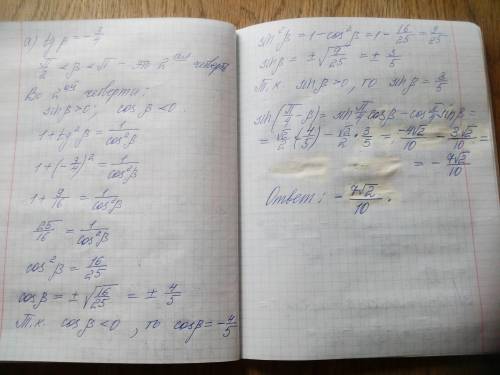 а) tg β = -3/4
π/2 < β < π - это 2 ой четверть
Во 2 ой четверти:
sin β > 0; cos β < 0.
1 + tg²β = 1/cos²β
1 + (-3/4)² = 1/cos²β
1 + 9/16 = 1/cos²β
25/16 = 1/cos²β
cos²β = 16/25
cos β = ± √(16/25) = ± 4/5
Т.к. cos β < 0, то cos β = -4/5
sin²β = 1 - cos²β = 1 - 16/25 = 9/25
sin β = ± √(9/25) = ± 3/5
Т.к. sin β > 0, то sin β = 3/5
sin(π/4 - β) = sin π/4 cos β - cos π/4 sin β =
= √2/2 · (-4/5) - √2/2 · 3/5 = -4√2/10 - 3√2/10 =
= - 7√2/10
Ответ: - 7√2/10.